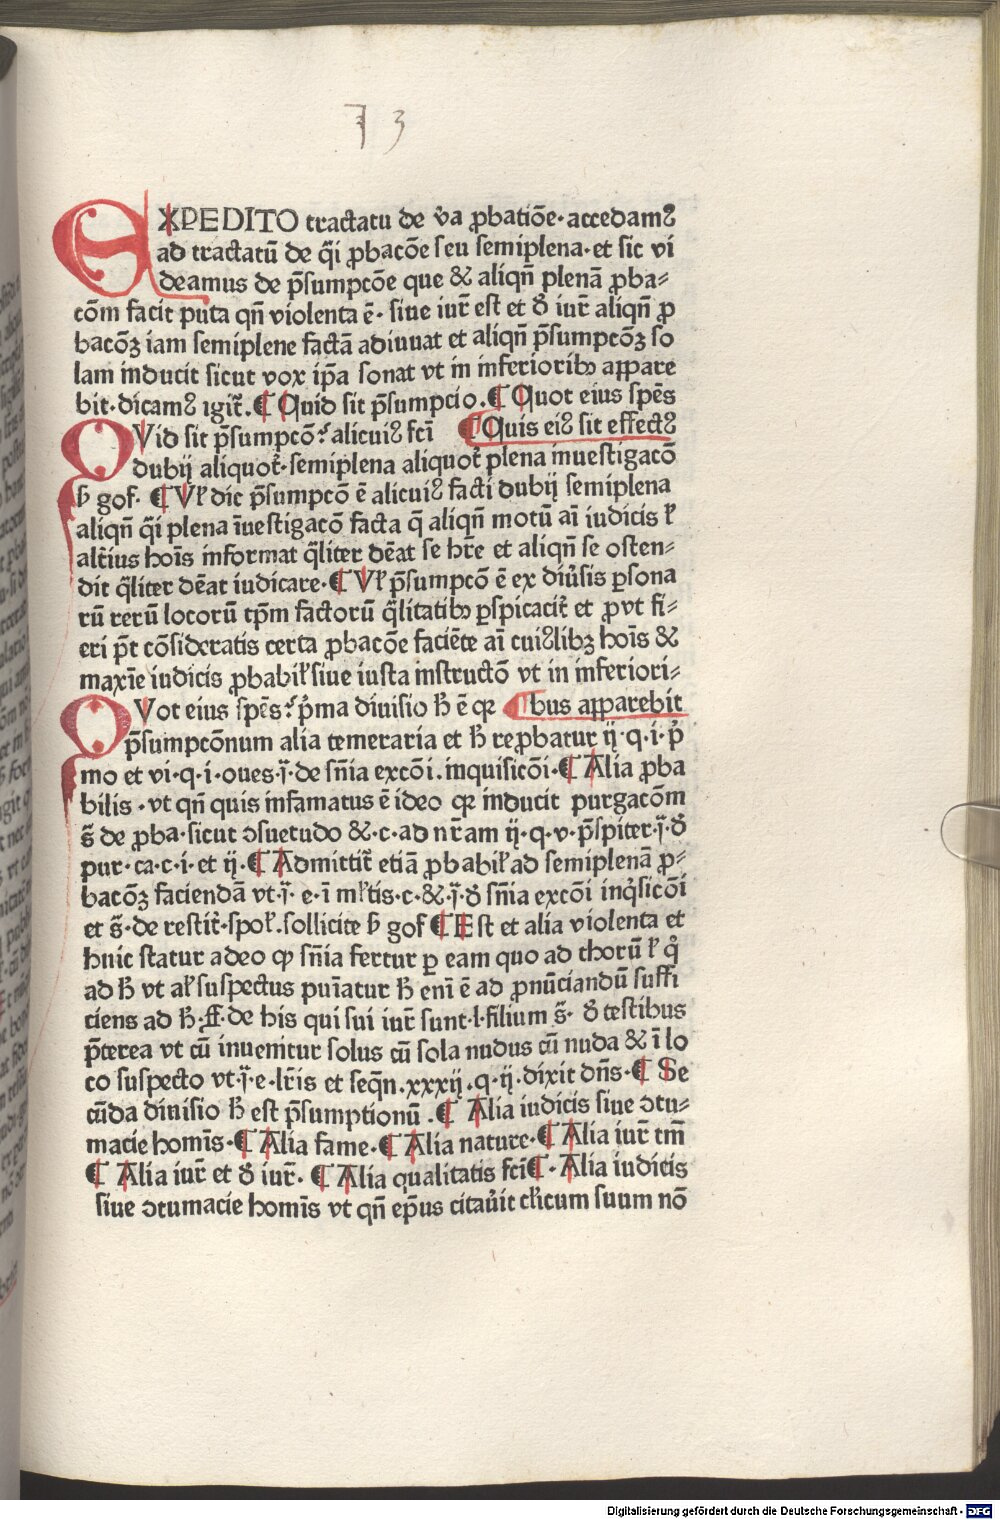 73
EXPEDITO tractatu de v̾a ꝓbatiōe· accedamꝰ
ad tractatū de q̄i ꝓbacōe seu semiplena· et sic vi
deamus de p̄sumpcōe que & aliqn̄ plenā ꝓba⸗
cōm facit puta qn̄ violenta ē· siue iur̄ est et ð iur̄ aliqn̄ ꝓ
bacōꝫ iam semiplene factā adiuuat et aliqn̄ p̄sumpcōꝫ so
lam inducit sicut vox ip̄a sonat vt in inferioribꝫ appare
bit· dicamꝰ igit̄. ¶ Quid sit p̄sumpcio. ¶ Quot eius spēs
QVid sit p̄sumpcō? alicuiꝰ fc̄i ¶ Quis eiꝰ sit effectꝰ
dubij aliquot̄· semiplena aliquot̄ plena inuestigacō
ẜm gof. ¶ Vꝉ dic p̄sumpcō ē alicuiꝰ facti dubij semiplena
aliqn̄ q̄i plena īuestigacō facta q̄ aliqn̄ motū aī iudicis ꝉ
alt̄ius hoīs informat q̄liter dēat se hr̄e et aliqn̄ se osten⸗
dit q̄liter dēat iudicare· ¶ Vꝉ p̄sumpcō ē ex diu̾sis ꝑsona
rū rerū locorū tp̄m factorū q̄litatibꝫ ꝑspicacit̄ et ꝓvt fi⸗
eri p̄t cōsideratis certa ꝓbacōe faciēte aī cuiꝰlibꝫ hoīs &
maxīe iudicis ꝓbabiꝉ siue iusta instructō vt in inferiori⸗
QVot eius spēs? p̾ma diuisio h̄ ē qꝛ ¶ bus apparebit
p̄sumpcōnum alia temeraria et h̄ reꝓbatur ij· q· i· p̾
mo et vi· q· i· oues· j̄· de sn̄ia excōi. inquisicōi· ¶ Alia ꝓba
bilis· vt qn̄ quis infamatus ē ideo qꝛ inducit purgacōm
s̄ de ꝓba· sicut ↄsuetudo &· c· ad nr̄am ij· q· v· p̄spiter· j̄· ð
pur· ca· c· i· et ij· ¶ Admittit̄ etiā ꝓbabiꝉ ad semiplenā ꝓ⸗
bacōꝫ faciendā vt· j̄· e· ī mꝉtis· c· &· j̄· ð sn̄ia excōi inq̾sicōi
et s̄· de restit̄· spoꝉ. sollicite ẜm gof ¶ Est et alia violenta et
huic statur adeo ꝙ sn̄ia fertur ꝑ eam quo ad thorū ꝉ q̾
ad h̄ vt aꝉ suspectus punīatur h̄ enī ē ad ꝓnūciandū suffi
ciens ad h̄· ff· de his qui sui iur̄ sunt· l· filium s̄· ð testibus
p̄terea vt cū inuenitur solus cū sola nudus cū nuda & ī lo
co suspecto vt· j̄· e· lr̄is et seqn̄. xxxij· q· ij· dixit dn̄s· ¶ Se
cūda diuisio h̄ est p̄sumptionū. ¶ Alia iudicis siue ↄtu⸗
macie homīs· ¶ Alia fame· ¶ Alia nature· ¶ Alia iur̄ tm̄
¶ Alia iur̄ et ð iur̄· ¶ Alia qualitatis fc̄i ¶· Alia iudicis
siue ↄtumacie homīs vt qn̄ ep̄us citau̾it cꝉicum suum nō
Digitalisierung gefördert durch die Deutsche Forschungsgemeinschaft - DFG